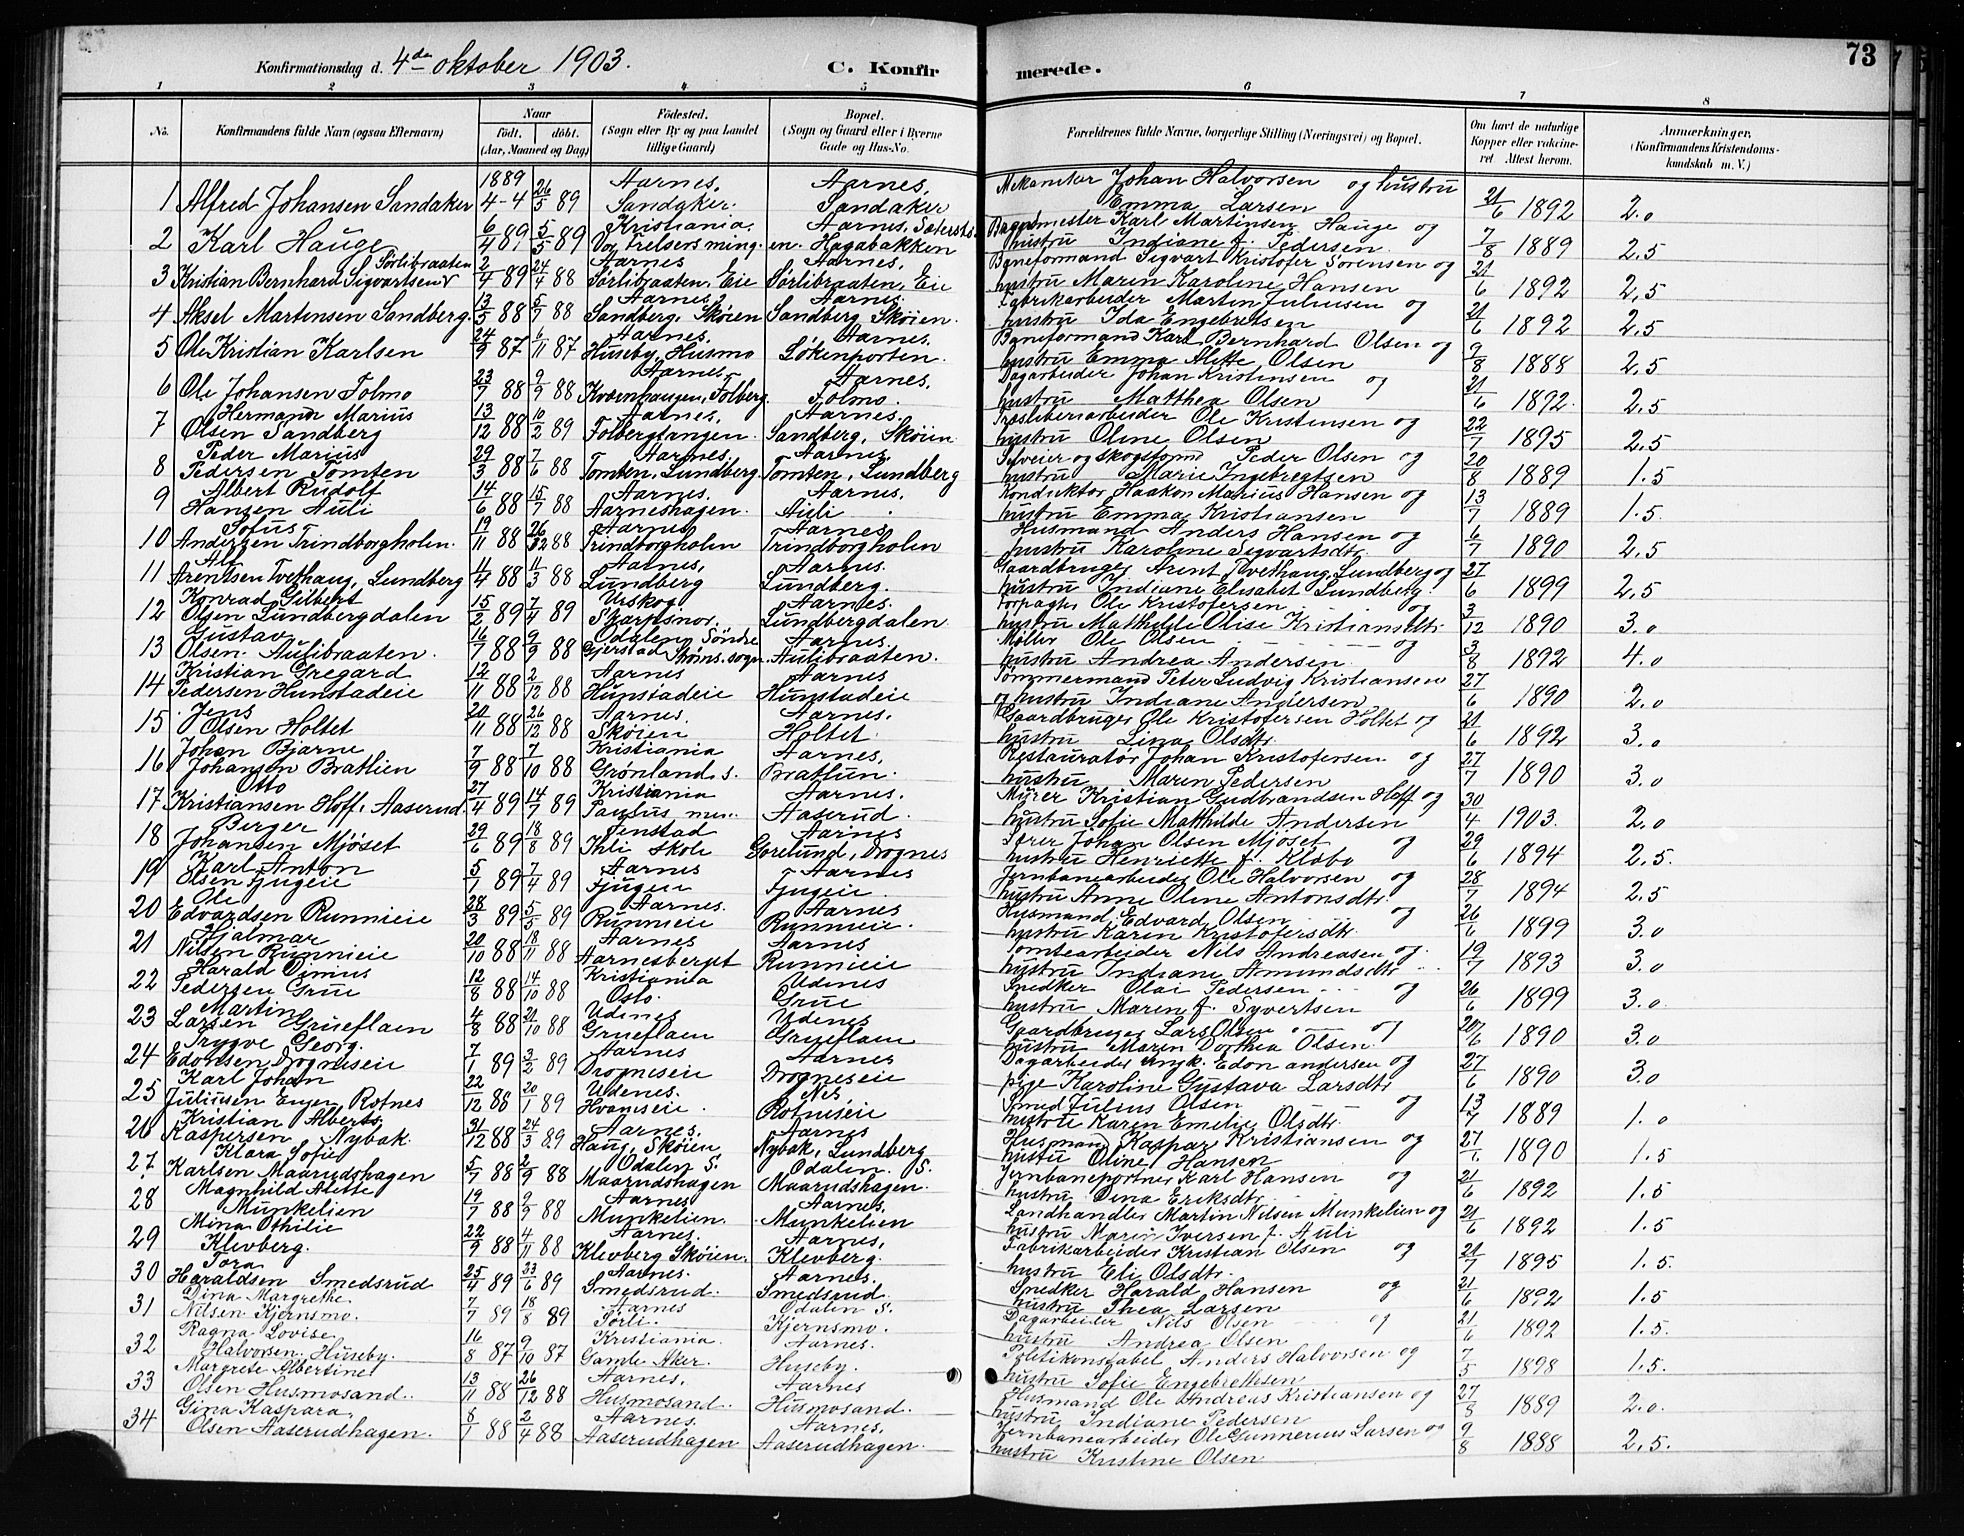 Konfirmationsdag d. 4de oktober 1903.
C. Konfirmerede.
73
1 2 3 4 5 6 7 8
No. Konfirmandens fulde Navn (ogsaa Efternavn) Naar födt. döbt. (Aar, Maaned og Dag) Födested. (Sogn eller By og paa Landet tillige Gaard) Bopæl. (Sogn og Gaard eller i Byerne Gade og Hus-No. Forældrenes fulde Navne, borgerlige Stilling (Næringsvei) og Bopæl. Om havt de naturlige Kopper eller vaccineret. Attest herom. Anmærkninger. (Konfirmandens Kristendomskundskab m. V.)
1889 Aarnes, Aarnes, Mekanitor Johan Halvorsen og hustru
1 Alfred Johansen Sandaker 4-4 26/5 89 Sandaker. Sandaker Emma Larsen 21/6 1892 2.0
Kristiania. Aarnes, Bagermester Karl Martinsen Hauge og
2 Karl Hauge 6/4 89 5/5 89 Vor Frelsers ming.en. Hagabakken hustru Indiane f. Pedersen. 7/8 1889 2,5
Sörlibraaten Aarnes Aarnes, Baneformand Sigvart Kristofer Sörensen og
3 Kristian Bernhard Sigvartsen 2/4 89 24/4 88 Sörlibraaten, Eie Sörlibraaten, Eie hustru Maren Karoline Hansen 21/6 1892 2,5
Aarnes, Aarnes. Fabrikarbeider Martin Juliusen og
4 Aksel Martensen Sandberg. 13/5 88 5/7 88 Sandberg, Skóien Sandberg Skóien. hustru Ida Engebretsen 21/6 1892 2,5
Aarnes, Aarnes. Baneformand Karl Bernhard Olsen og
5 Ole Kristian Karlsen 24/9 87 6/11 87 Huseby, Husmo Lökenporten. hustru Emma Alette Olsen 9/8 1888 2,5
Aarnes, Aarnes, Dagarbeider Johan Kristensen og
6 Ole Johansen Folmo 23/7 88 9/9 88 Kvænhaugen, Folberg. Folmo. hustru Matthea Olsen 21/6 1892. 2,5
Hermann Marius Aarnes, Aarnes. Træsliberiarbeider Ole Kristensen og
7 Olsen Sandberg 13/12 88 10/2 89 Folbergtangen. Sandberg, Skóien hustru Oline Olsen 22/7 1895 2,5
Peder Marius Aarnes. Aarnes Selveier og skogsformd Peder Olsen og
8 Pedersen Tomten 29/3 88 7/6 88 Tomten, Lundberg. Tomten, Lundberg hustru Marie Ingebregtsen 20/8 1889 1.5
Albert Rudolf Aarnes. Aarnes, Konduktor Haakon Marius Hansen og
9 Hansen Auli 14/6 88 15/7 88 Aarneshagen. Auli hustru Emma Kristiansen 13/7 1889 1.5.
Sofus Aarnes Aarnes Husmand Anders Hansen og
10 Andersen Trindborgholen. 19/11 88 26/12 88 Trindborgholen Trindborgholen hustru Karoline Sigvartsdtr. 6/7 1890 2,5
Alf Aarnes, Aarnes. Gaardbruger Arent Tvethaug, Lundberg og
11 Arentsen Tvethaug, Lundberg 11/4 88 11/3 88 Lundberg Lundberg. hustru Indiane Elisabet Lundberg. 27/6 1899 2,5
Konrad Gilbert Urskog Aarnes. Forpagter Ole Kristofersen og
12 Olsen Lundbergdalen 15/2 89 7/4 89 Skarpsnor. Lundbergdalen hustru Mathilde Olise Kristiansdtr. 3/12 1890 3.0
Gustav Odalen, Söndre Aarnes Möller Ole Olsen og
13 Olsen. Aulibraaten. 16/7 88 9/9 88 Gjerstad Ströms. sogn. Aulibraaten. hustru Andrea Andersen 3/8 1892 4.0
Kristian Gregard Aarnes Aarnes Tömmermand Peter Ludvig Kristiansen
14 Pedersen Hunstadeie 12/11 88 2/12 88 Hunstadeie Hunstadeie og hustru Indiane Andersen 27/6 1890 2.0
Jens Aarnes. Aarnes. Gaardbruger Ole Kristofersen Holtet og
15 Olsen Holtet 20/11 88 26/12 88 Skóien Holtet. hustru Lina Olsdtr. 21/6 1892 3.0
Johan Bjarne Kristiania Aarnes, Restauratör Johan Kristofersen og
16 Johansen Bratlien 7/9 88 7/10 88 Grönland. s. Bratlien. hustru Maren Pedersen 27/7 1890 3.0
Otto Kristiania Aarnes. Murer Kristian Gudbrandsen Hoff og
17 Kristiansen Hoff, Aaserud. 27/4 89 14/7 89 Paulus men. Aaserud. hustru Sofie Matthilde Andersen 30/4 1903. 2.0
Berger Fenstad Aarnes Sorer Johan Olsen Mjöset og
18 Johansen Mjöset 29/6 89 18/8 89 Ihli Skole Gorelund, Drognes hustru Henriette f. Klöbo 29/6 1894 2,5.
Karl Anton Aarnes Aarnes Jernbanearbeider Ole Halvorsen og
19 Olsen Fjugeie 5/1 89 7/4 89 Fjugen Fjugeie. hustru Anne Oline Antonsdtr. 28/7 1894 2,5
Ole Aarnes. Aarnes Husmand Edvard Olsen og
20 Edvardsen Runnieie 28/3 89 5/5 89 Runnieie Runnieie. hustru Karen Kristofersdtr. 26/6 1899 3.0
Hjalmar Aarnes Aarnes Tomtearbeider Nils Andreasen og
21 Nilsen Runnieie 20/10 88 18/11 88 Aarnesberget Runnieie hustru Indiane Amundsdtr. 19/7 1893 3.0
Harald Dimius Kristiania Udenes Snedker Olai Pedersen og
22 Pedersen Grue 12/8 88 14/10 88 Oslo. Grue hustru Maren f. Syvertsen 26/6 1899 3.0
Martin Udenes Udenes Gaardbruger Lars Olsen og
23 Larsen Grueflaen 4/8 88 21/10 88 Grueflaen Grueflaen hustru Maren Dorthea Olsen. 20/6 1890 3.0
Trygve Georg. Aarnes Aarnes Dagarbeider Ungk. Edon andersen og
24 Edonsen Drogneseie 7/1 89 3/2 89 Drogneseie Drogneseie pige Karoline Gustava Larsdtr. 27/6 1890 3.0
Karl Johan Udenes. Nes Smed Julius Olsen og
25 Juliusen Engen Rotnes 22/12 88 20/1 89 Hvamseie. Rotneseie hustru Karen Emelie Olsdtr. 13/7 1889 1.0
Kristian Alberts Aarnes. Aarnes Husmand Kaspar Kristiansen og
26 Kaspersen Nybak. 31/12 88 24/3 89 Haug, Skóien Nybak, Lundberg hustu Oline Hansen 27/6 1890 1.5
Klara Sofie Odalen S. Odalen. S. Jernbaneportner Karl Hansen og
27. Karlsen Maarudshagen 5/7 88 2/9 88 Maarudshagen Maarudshagen. hustru Dina Eriksdtr. 21/6 1892 1.5
Magnhild Alette Aarnes Aarnes, Landhandler Martin Nilsen Munkelien og
28 Munkelien 19/7 88 2/9 88 Munkelien. Munkelien hustru Marie Iversen f. Auli 21/6 1892 1.5
Mina Othilie Aarnes. Aarnes, Fabrikarbeider Kristian Olsen og
29 Klevberg. 22/9 88 4/11 88 Klevberg Skóien. Klevberg. hustru Eli Olsdtr. 21/7 1895 1.5.
Tora Aarnes. Aarnes. Snedker Harald Hansen og
30 Haraldsen Smedsrud 25/4 89 23/6 89 Smedsrud. Smedsrud. hustru Thea Larsen 21/6 1892 1.5
Dina Margrethe Aarnes Odalen S. Dagarbeider Nils Olsen og
31 Nilsen Kjernsmo. 7/7 89 18/8 89 Sörli. Kjernsmo. hustru Andrea Olsen 21/6 1892 1.5.
Ragna Lovise Kristiania. Aarnes. Politikonstabel Anders Halvorsen og
32 Halvorsen. Huseby. 16/8 87 9/10 87 Gamle Aker. Huseby. hustru Sofie Engebretsen 7/5 1898 1.5.
Margrete Albertine Aarnes. Aarnes Husmand Ole Andreas Kristiansen og
33 Olsen Husmosand. 13/11 88 26/12 88 Husmosand. Husmosand. hustru Indiane Pedersen 27/8 1889 2.0.
Gina Kaspara Aarnes. Aarnes. Jernbanearbeider Ole Gunnerius Larsen og
34 Olsen Aaserudhagen. 8/1 88 2/4 88 Aaserudhagen Aaserudhagen. hustru Kristine Olsen 9/8 1888 2,5.